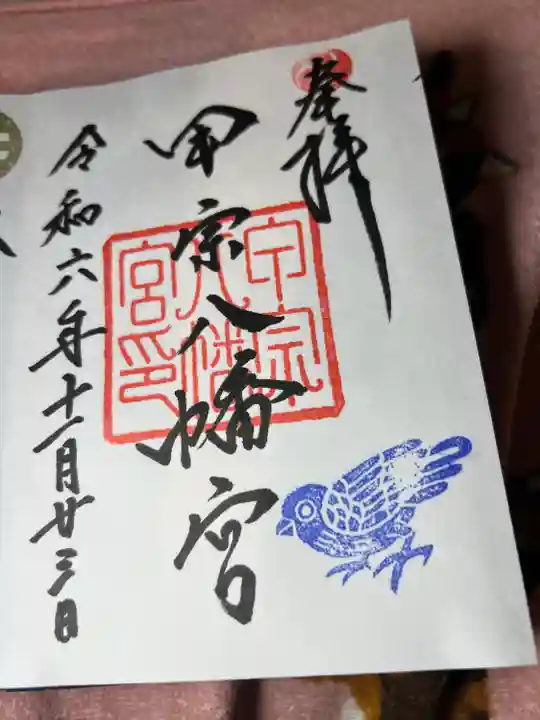 奉拝
甲宗八幡宮
甲宗八幡宮印
令和六年十一月廿三日